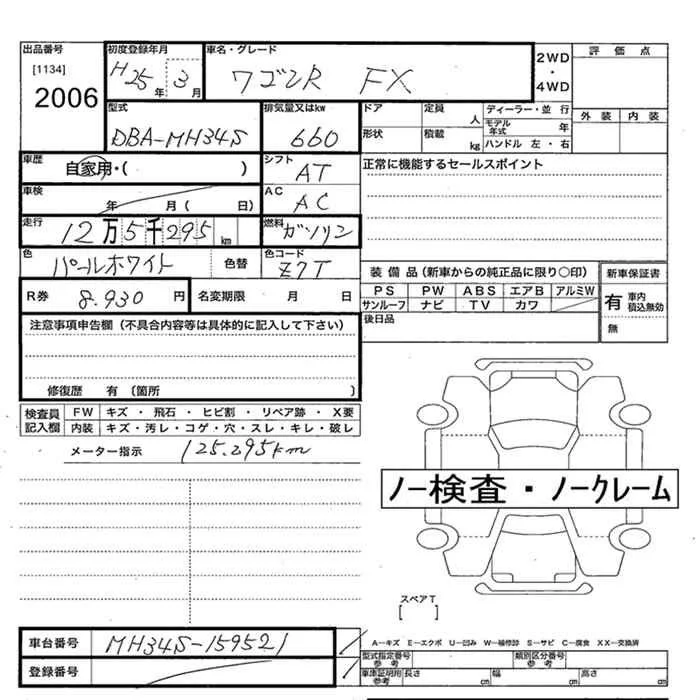 出品番号 初度登録年月 車名・グレード 評価点
[1134] H25年3月 ワゴンR FX 2WD・4WD
2006 外装 内装
型式 排気量又はkw ドア 定員 人 ディーラー・並行
DBA-MH34S 660 形状 積載 kg モデル年式 年
ハンドル 左・右
車歴 自家用・( ) シフト AT 正常に機能するセールスポイント
車検 年 月( 日) AC AC
走行 12万5千295km 燃料 ガソリン
色 パールホワイト 色替 色コード Z7T
装備品(新車からの純正品に限り○印) 新車保証書
R券 8.930円 名変期限 月 日 PS PW ABS エアB アルミW 有 車内積込無効
サンルーフ ナビ TV カワ 無
注意事項申告欄(不具合内容等は具体的に記入して下さい) 後日品
修復歴 有 (箇所 )
検査員記入欄 FW キズ・飛石・ヒビ割・リペア跡・X要
内装 キズ・汚レ・コゲ・穴・スレ・キレ・破レ
メーター指示 125.295km
ノー検査・ノークレーム
スペアT
[ ]
車台番号 MH34S-159521 A-キズ E-エクボ U-凹み W-補修跡 S-サビ C-腐食 XX-交換済
型式指定番号 参考 類別区分番号 参考
登録番号 車庫証明用参考 長さ cm 幅 cm 高さ cm